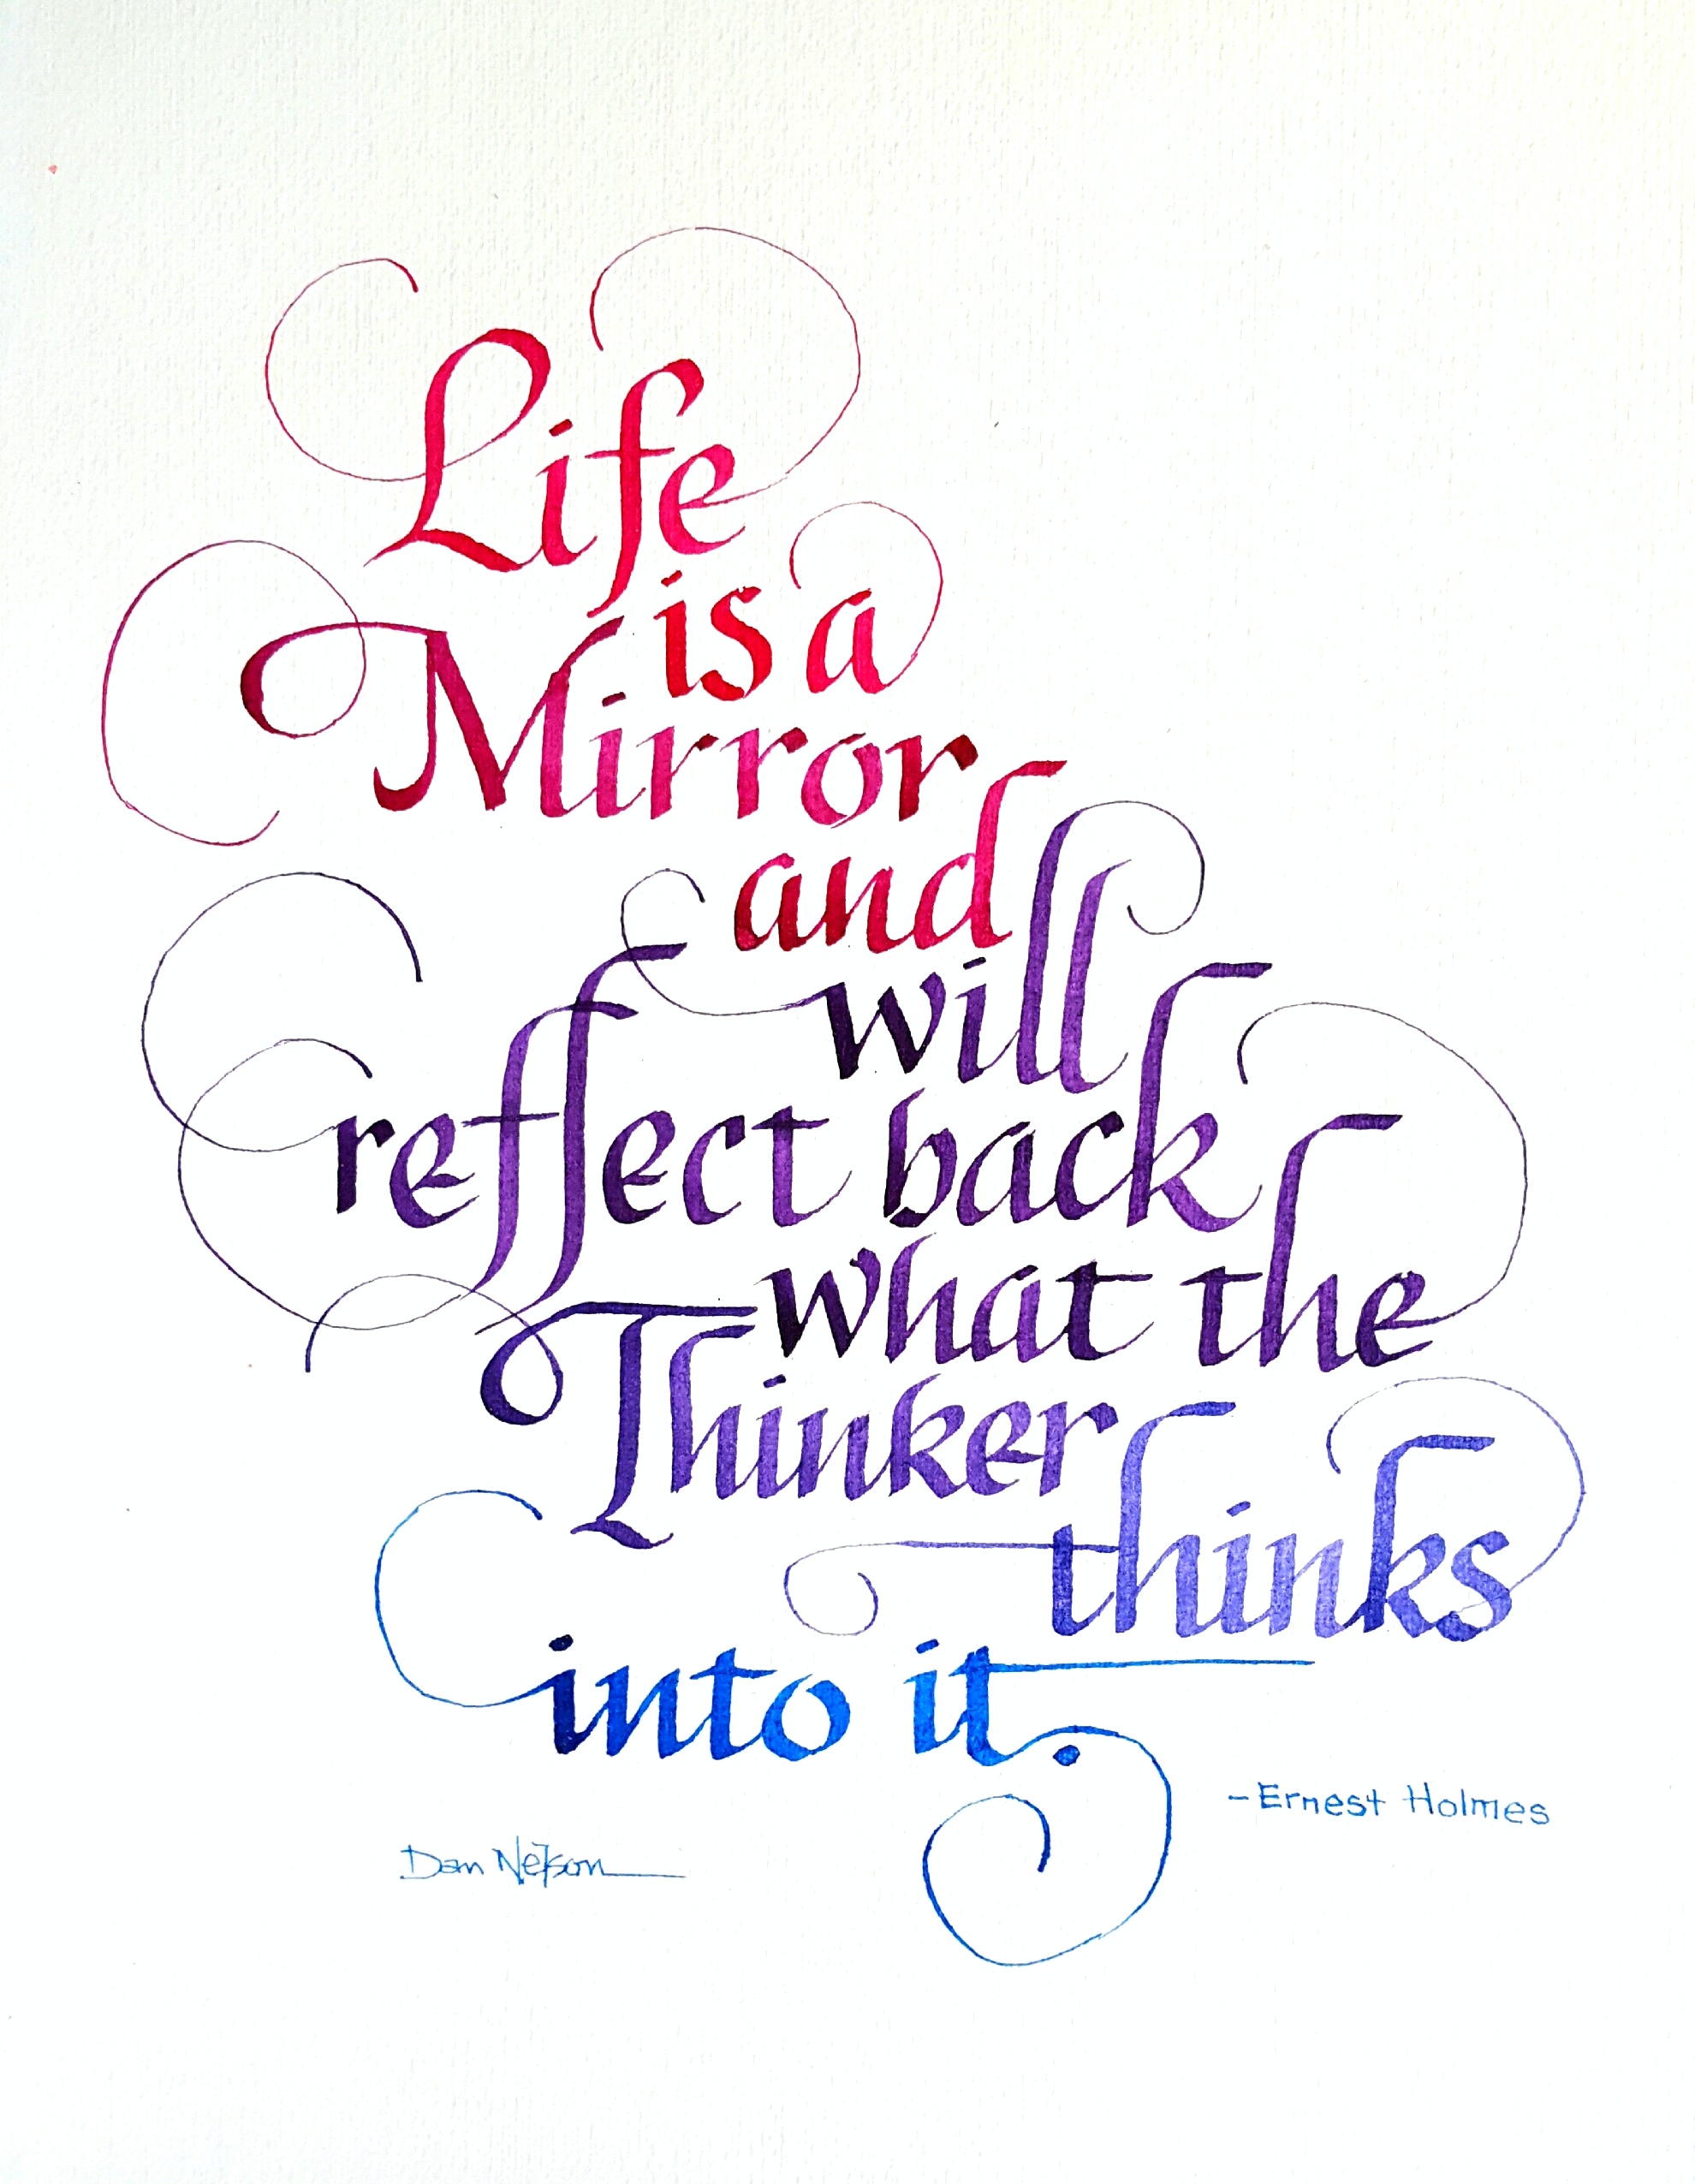 Life
is a
Mirror
and
will
reflect back
what the
Thinker
thinks
into it.
-Ernest Holmes
Dan Nelson